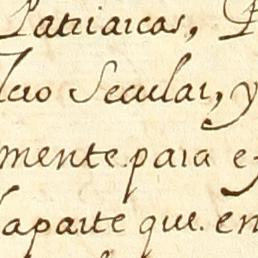 Patriarcas,
Secular, y
mente para
aparte que en